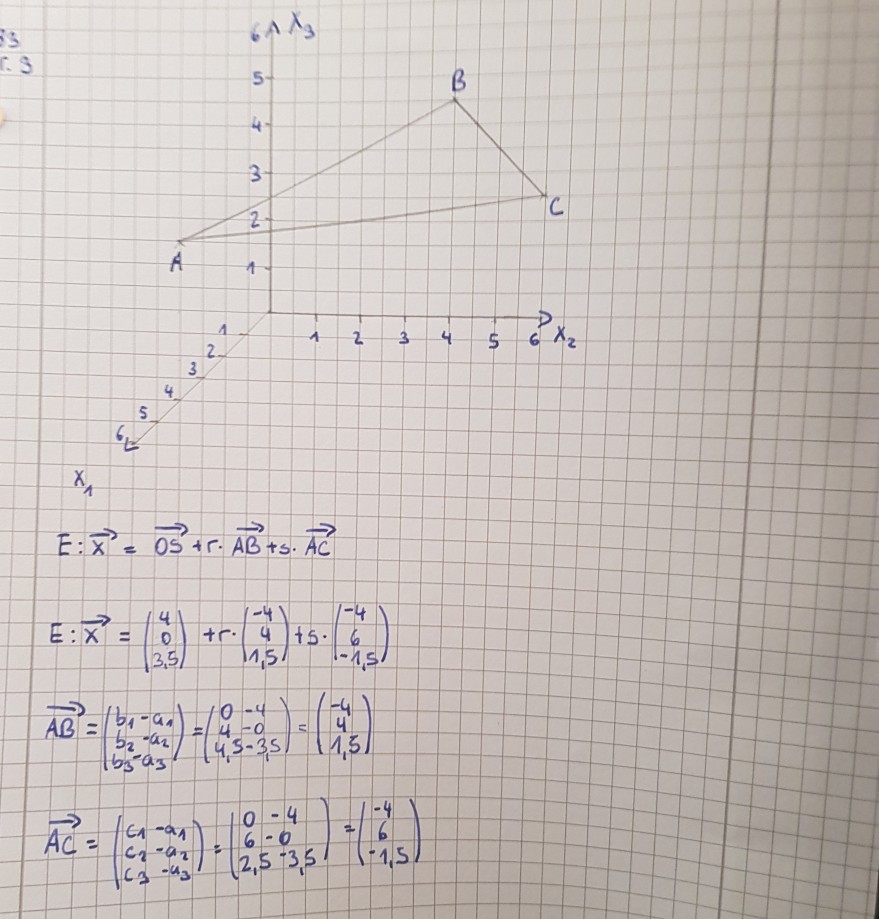 33
r. 3
6 X₃
5
B
4
3
C
2
A
1
1 2 3 4 5 6 X₂
1
2
3
4
5
6
X₁
E: x⃗ = O⃗S⃗ + r· A⃗B⃗ + s· A⃗C⃗
E: x⃗ = (4 0 3,5) + r· (-4 4 1,5) + s· (-4 6 -1,5)
A⃗B⃗ = (b₁-a₁ b₂-a₂ b₃-a₃) = (0-4 4-0 4,5-3,5) = (-4 4 1,5)
A⃗C⃗ = (c₁-a₁ c₂-a₂ c₃-a₃) = (0-4 6-0 2,5-3,5) = (-4 6 -1,5)